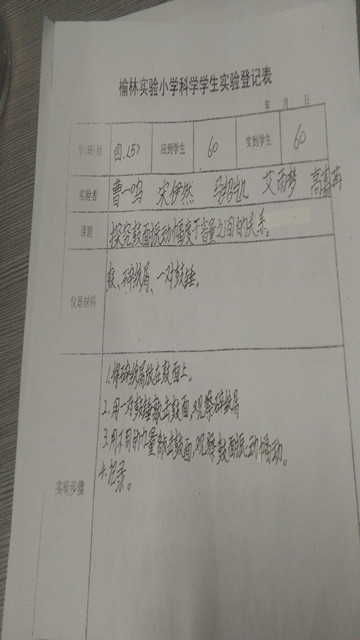 榆林实验小学科学学生实验登记表
年 月 日
年(班)级 四.(5) 应到学生 60 实到学生 60
实验者 曹一鸣 宋伊然 艾雨梦
课题 探究鼓面振动幅度于音量之间的关系。
仪器材料 鼓、碎纸屑、一对鼓锤。
实验步骤
1.将碎纸屑放在鼓面上。
2.用一对鼓锤敲击鼓面,观察碎纸屑
3.用不同的力量敲击鼓面,观察鼓面振动幅动。
4.记录。